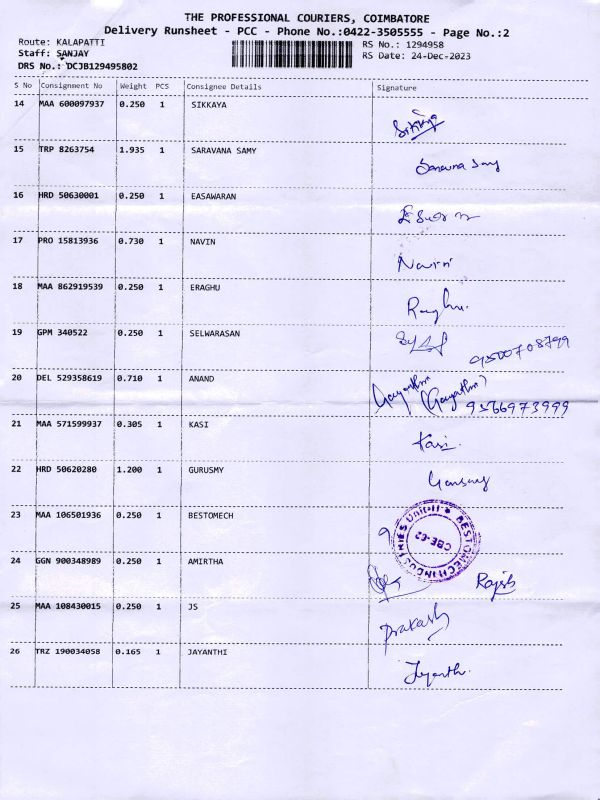 THE PROFESSIONAL COURIERS, COIMBATORE
Delivery Runsheet - PCC - Phone No.:0422-3505555 - Page No.:2
Route: KALAPATTI
RS No.: 1294958
Staff: SANJAY
RS Date: 24-Dec-2023
DRS No.: DCJB129495802
S No Consignment No Weight PCS Consignee Details Signature
14 MAA 600097937 0.250 1 SIKKAYA Sikkaya
15 TRP 8263754 1.935 1 SARAVANA SAMY Saravana Samy
16 HRD 50630001 0.250 1 EASAWARAN
17 PRO 15813936 0.730 1 NAVIN Navin
18 MAA 862919539 0.250 1 ERAGHU Raghu.
19 GPM 340522 0.250 1 SELWARASAN 9500708799
20 DEL 529358619 0.710 1 ANAND Gayathri (Gayathri) 9566973999
21 MAA 571599937 0.305 1 KASI Kasi.
22 HRD 50620280 1.200 1 GURUSMY Gurusmy
23 MAA 106501936 0.250 1 BESTOMECH BESTOMECH INDUSTRIES Unit-II CBE-62
24 GGN 900348989 0.250 1 AMIRTHA Rajesh
25 MAA 108430015 0.250 1 JS Prakash
26 TRZ 190034058 0.165 1 JAYANTHI Jayanthi.